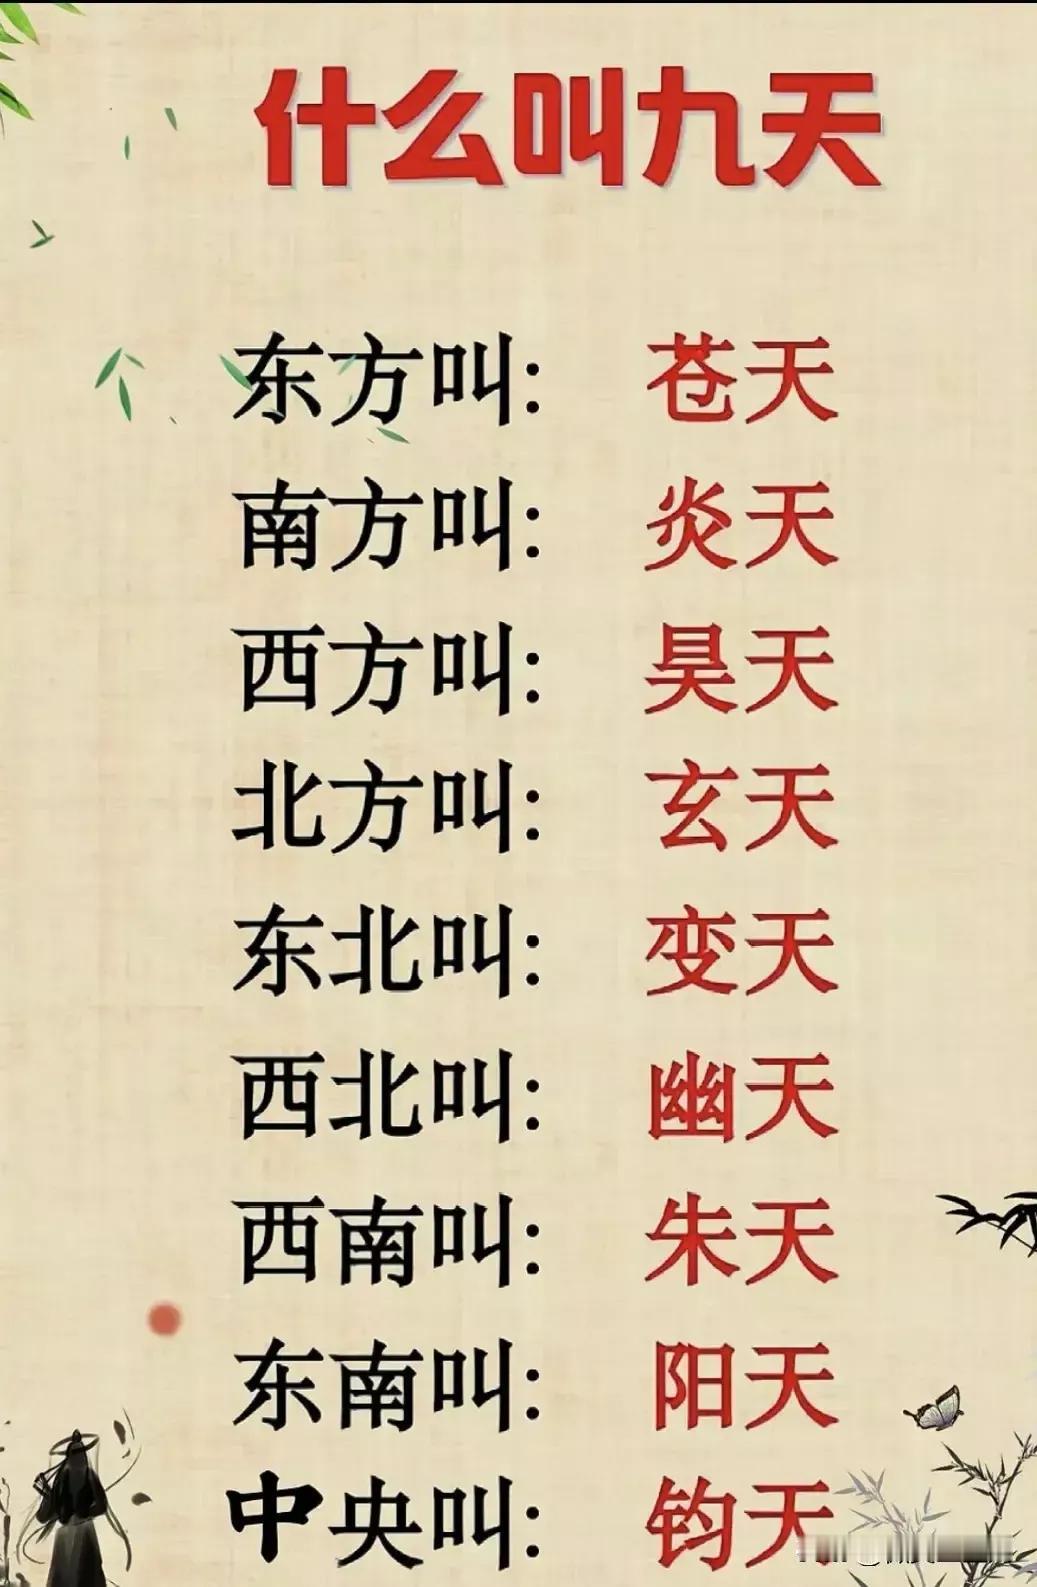 什么叫九天
东方叫: 苍天
南方叫: 炎天
西方叫: 昊天
北方叫: 玄天
东北叫: 变天
西北叫: 幽天
西南叫: 朱天
东南叫: 阳天
中央叫: 钧天